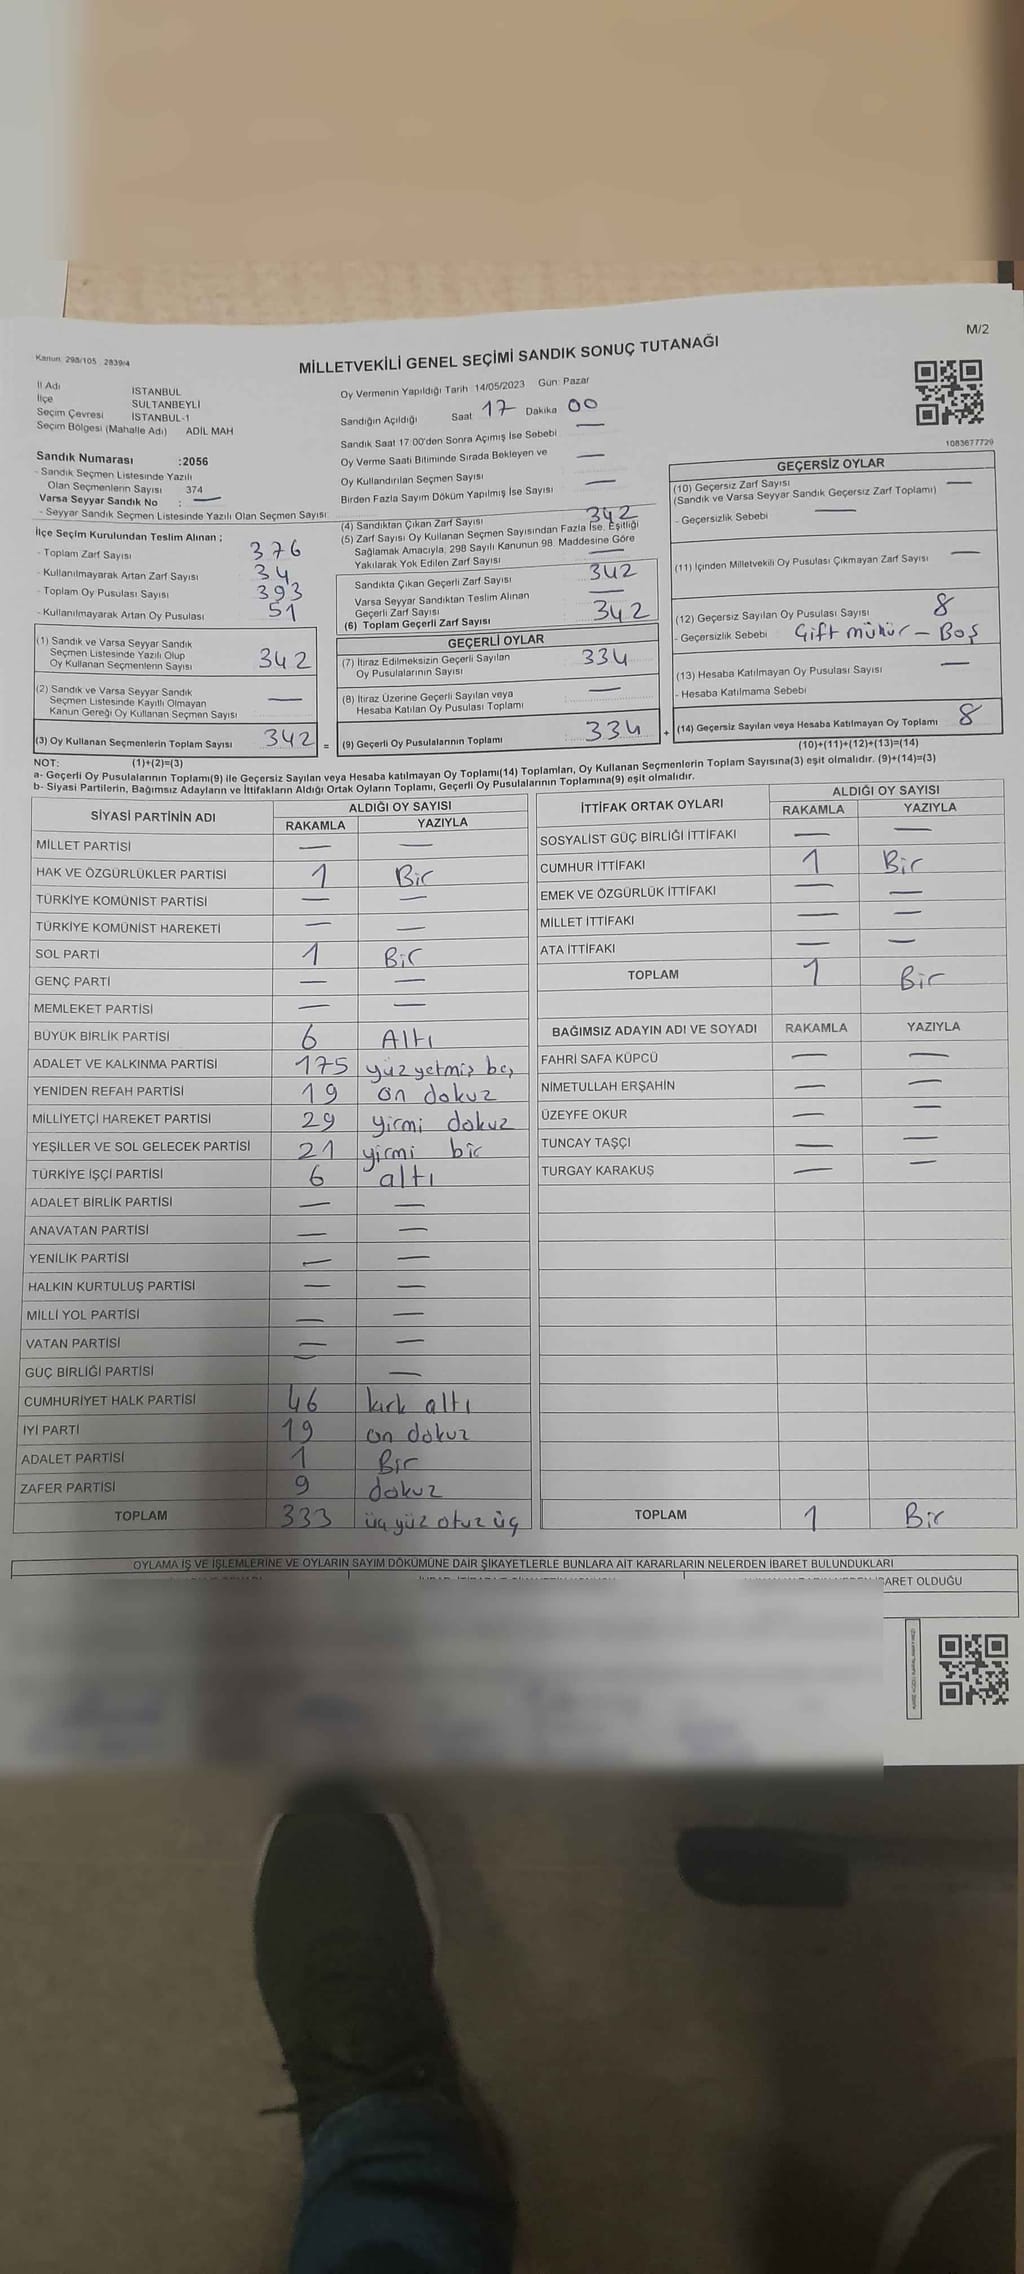 M/2
Kanun: 298/105 , 2839/4
MİLLETVEKİLİ GENEL SEÇİMİ SANDIK SONUÇ TUTANAĞI
İl Adı İSTANBUL
İlçe SULTANBEYLİ
Seçim Çevresi İSTANBUL-1
Seçim Bölgesi (Mahalle Adı) ADİL MAH
Oy Vermenin Yapıldığı Tarih :14/05/2023 Gün: Pazar
Sandığın Açıldığı Saat 17 Dakika 00
Sandık Saat 17:00'den Sonra Açımış İse Sebebi —
Oy Verme Saati Bitiminde Sırada Bekleyen ve
Oy Kullandırılan Seçmen Sayısı —
Birden Fazla Sayım Döküm Yapılmış İse Sayısı —
1083677729
Sandık Numarası :2056
- Sandık Seçmen Listesinde Yazılı
Olan Seçmenlerin Sayısı 374
Varsa Seyyar Sandık No : —
- Seyyar Sandık Seçmen Listesinde Yazılı Olan Seçmen Sayısı:
İlçe Seçim Kurulundan Teslim Alınan ;
- Toplam Zarf Sayısı 376
- Kullanılmayarak Artan Zarf Sayısı 34
- Toplam Oy Pusulası Sayısı 393
- Kullanılmayarak Artan Oy Pusulası 51
(1) Sandık ve Varsa Seyyar Sandık
Seçmen Listesinde Yazılı Olup
Oy Kullanan Seçmenlerin Sayısı 342
(2) Sandık ve Varsa Seyyar Sandık
Seçmen Listesinde Kayıtlı Olmayan
Kanun Gereği Oy Kullanan Seçmen Sayısı —
(3) Oy Kullanan Seçmenlerin Toplam Sayısı 342 =
(4) Sandıktan Çıkan Zarf Sayısı 342
(5) Zarf Sayısı Oy Kullanan Seçmen Sayısından Fazla İse, Eşitliği
Sağlamak Amacıyla, 298 Sayılı Kanunun 98. Maddesine Göre
Yakılarak Yok Edilen Zarf Sayısı —
Sandıkta Çıkan Geçerli Zarf Sayısı 342
Varsa Seyyar Sandıktan Teslim Alınan
Geçerli Zarf Sayısı —
(6) Toplam Geçerli Zarf Sayısı 342
GEÇERLİ OYLAR
(7) İtiraz Edilmeksizin Geçerli Sayılan
Oy Pusulalarının Sayısı 334
(8) İtiraz Üzerine Geçerli Sayılan veya
Hesaba Katılan Oy Pusulası Toplamı —
(9) Geçerli Oy Pusulalarının Toplamı 334 +
GEÇERSİZ OYLAR
(10) Geçersiz Zarf Sayısı
(Sandık ve Varsa Seyyar Sandık Geçersiz Zarf Toplamı) —
- Geçersizlik Sebebi —
(11) İçinden Milletvekili Oy Pusulası Çıkmayan Zarf Sayısı —
(12) Geçersiz Sayılan Oy Pusulası Sayısı 8
- Geçersizlik Sebebi Çift mühür - Boş
(13) Hesaba Katılmayan Oy Pusulası Sayısı —
- Hesaba Katılmama Sebebi
(14) Geçersiz Sayılan veya Hesaba Katılmayan Oy Toplamı 8
NOT: (1)+(2)=(3) (10)+(11)+(12)+(13)=(14)
a- Geçerli Oy Pusulalarının Toplamı(9) ile Geçersiz Sayılan veya Hesaba katılmayan Oy Toplamı(14) Toplamları, Oy Kullanan Seçmenlerin Toplam Sayısına(3) eşit olmalıdır. (9)+(14)=(3)
b- Siyasi Partilerin, Bağımsız Adayların ve İttifakların Aldığı Oyların Toplamı, Geçerli Oy Pusulalarının Toplamına(9) eşit olmalıdır.
SİYASİ PARTİNİN ADI ALDIĞI OY SAYISI
RAKAMLA YAZIYLA
MİLLET PARTİSİ — —
HAK VE ÖZGÜRLÜKLER PARTİSİ 1 Bir
TÜRKİYE KOMÜNİST PARTİSİ — —
TÜRKİYE KOMÜNİST HAREKETİ — —
SOL PARTİ 1 Bir
GENÇ PARTİ — —
MEMLEKET PARTİSİ — —
BÜYÜK BİRLİK PARTİSİ 6 Altı
ADALET VE KALKINMA PARTİSİ 175 yüz yetmiş beş
YENİDEN REFAH PARTİSİ 19 on dokuz
MİLLİYETÇİ HAREKET PARTİSİ 29 yirmi dokuz
YEŞİLLER VE SOL GELECEK PARTİSİ 21 yirmi bir
TÜRKİYE İŞÇİ PARTİSİ 6 altı
ADALET BİRLİK PARTİSİ — —
ANAVATAN PARTİSİ — —
YENİLİK PARTİSİ — —
HALKIN KURTULUŞ PARTİSİ — —
MİLLİ YOL PARTİSİ — —
VATAN PARTİSİ — —
GÜÇ BİRLİĞİ PARTİSİ — —
CUMHURİYET HALK PARTİSİ 46 kırk altı
İYİ PARTİ 19 on dokuz
ADALET PARTİSİ 1 Bir
ZAFER PARTİSİ 9 dokuz
TOPLAM 333 üç yüz otuz üç
İTTİFAK ORTAK OYLARI ALDIĞI OY SAYISI
RAKAMLA YAZIYLA
SOSYALİST GÜÇ BİRLİĞİ İTTİFAKI — —
CUMHUR İTTİFAKI 1 Bir
EMEK VE ÖZGÜRLÜK İTTİFAKI — —
MİLLET İTTİFAKI — —
ATA İTTİFAKI — —
TOPLAM 1 Bir
BAĞIMSIZ ADAYIN ADI VE SOYADI RAKAMLA YAZIYLA
FAHRİ SAFA KÜPCÜ — —
NİMETULLAH ERŞAHİN — —
ÜZEYFE OKUR — —
TUNCAY TAŞÇI — —
TURGAY KARAKUŞ — —
TOPLAM 1 Bir
OYLAMA İŞ VE İŞLEMLERİNE VE OYLARIN SAYIM DÖKÜMÜNE DAİR ŞİKAYETLERLE BUNLARA AİT KARARLARIN NELERDEN İBARET BULUNDUKLARI
İBARET OLDUĞU